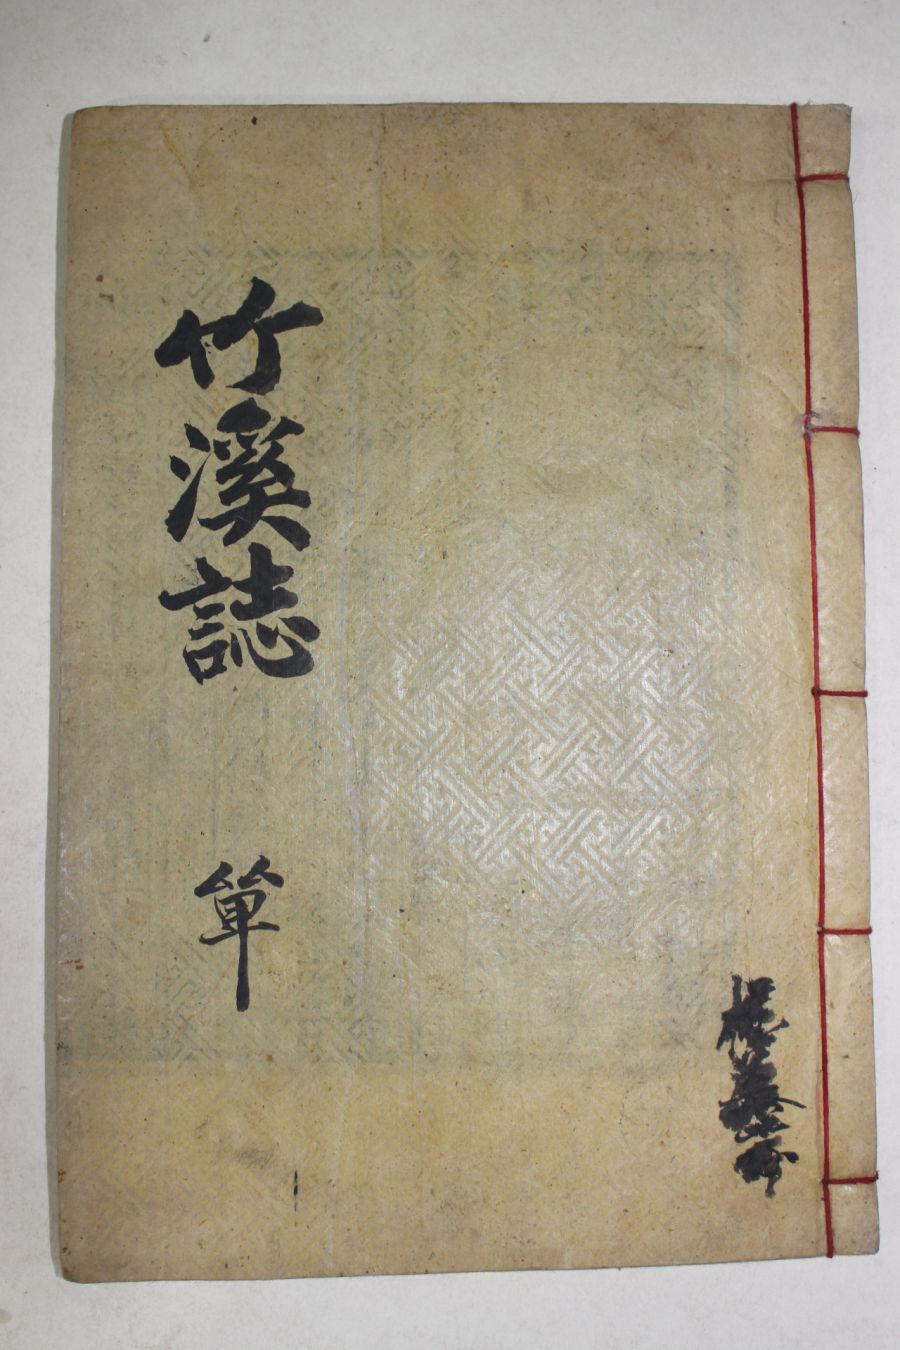 竹溪誌
單